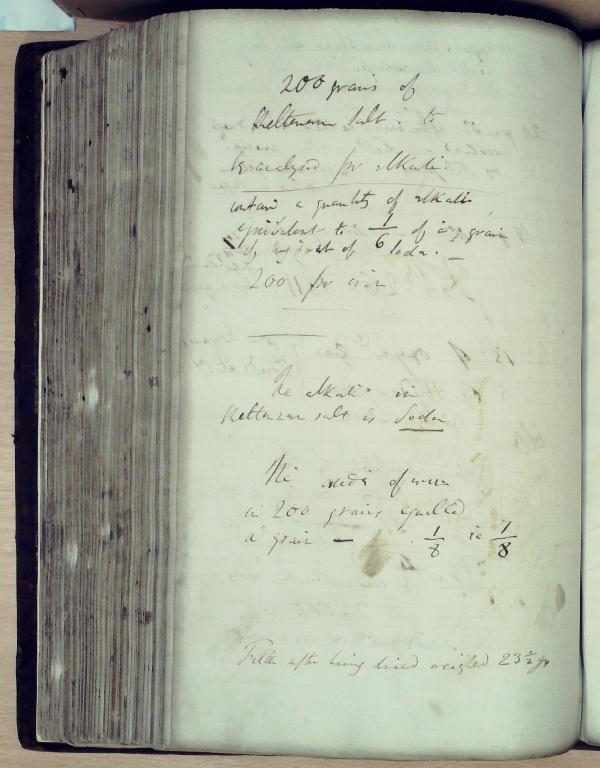 200 grains of
Cheltenham Salt. to
be analysed for alkali
contain a quantity of alkali
equivalent to 1/6 of a grain
of hydrat of Soda. -
200 for iron
The alkali in
Cheltenham salt is Soda
The oxide of iron
in 200 grains equalled
a grain - 1/8 ie 7/8
Filter after being dried weighed 23 1/2 grs